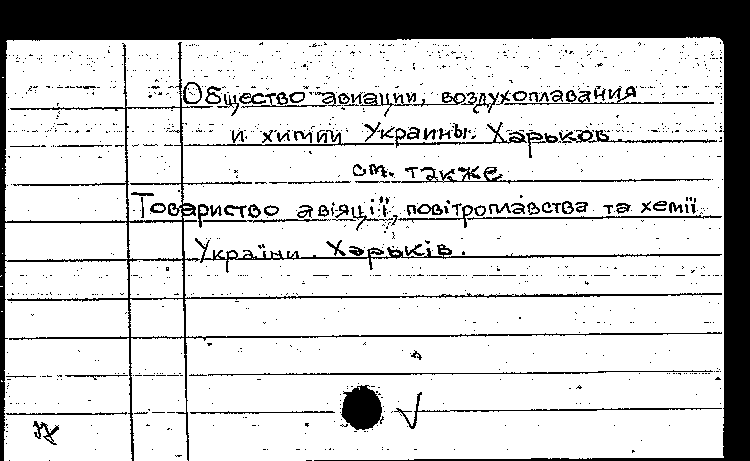 Общество авиации, воздухоплавания
и химии Украины. Харьков.
см. также
Товариство авіяції, повітроплавства та хемії
України. Харьків.